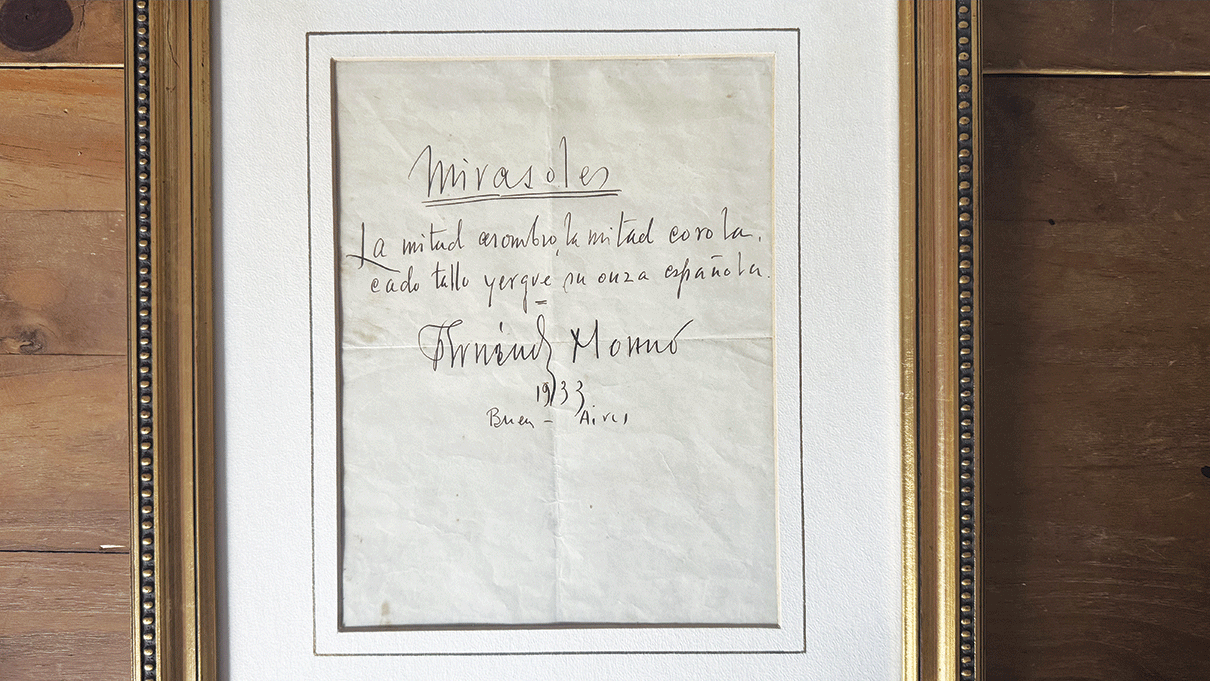 Mirasoles
La mitad asombro, la mitad corola,
cada tallo yergue su onza española.
Fernández Moreno
1933
Buen - Aires